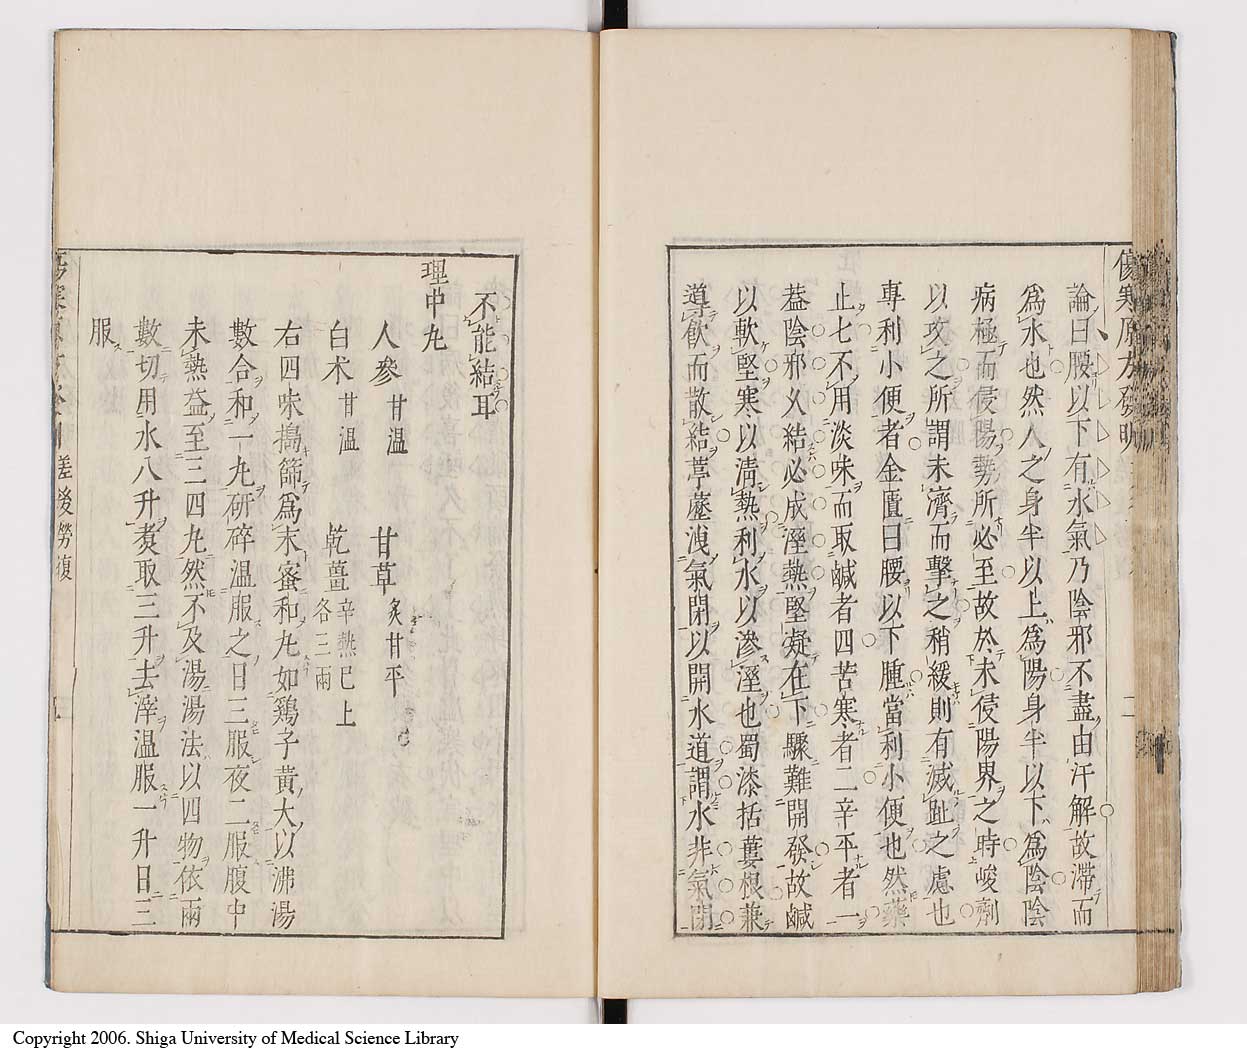 傷寒原方發明
論曰腰以下有水氣乃陰邪不盡由汗解故滯而
爲水也然人之身半以上爲陽身半以下爲陰陰
病極而侵陽勢所必至故於未侵陽界之時峻劑
以攻之所謂未濟而擊之稍緩則有滅趾之慮也
專利小便者金匱曰腰以下腫當利小便也然藥
止七不用淡味而取鹹者四苦寒者二辛平者一
葢陰邪久結必成溼熱堅凝在下驟難開發故鹹
以軟堅寒以淸熱利水以滲溼也蜀漆括蔞根兼
導飮而散結葶藶洩氣閉以開水道謂水非氣閉
不能結耳
理中丸
人參甘溫 甘草炙甘平
白朮甘溫 乾薑辛熱已上各三兩
右四味搗篩爲末蜜和丸如鷄子黃大以沸湯
數合和一丸研碎溫服之日三服夜二服腹中
未熱益至三四丸然不及湯湯法以四物依兩
數切用水八升煑取三升去滓溫服一升日三
服
差後勞復
Copyright 2006. Shiga University of Medical Science Library